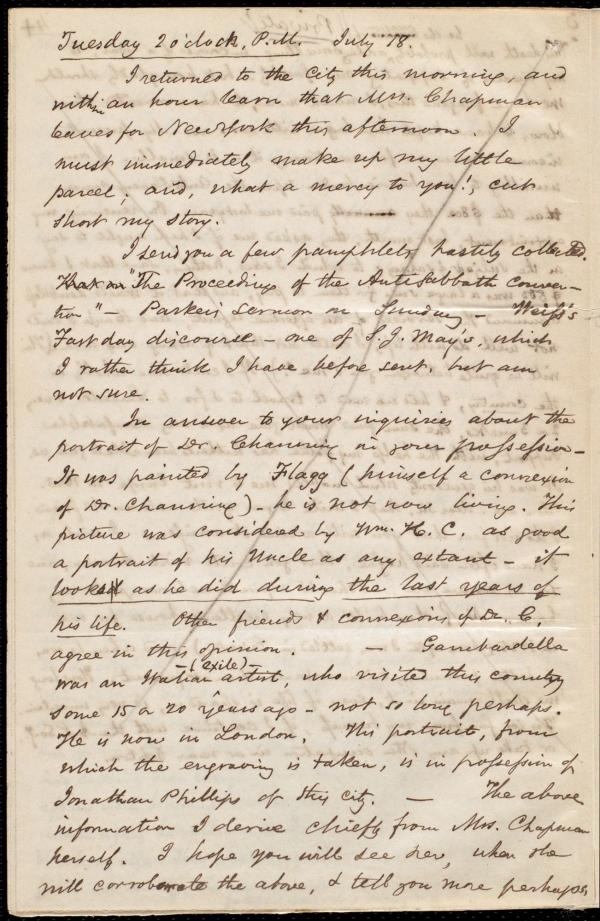 Tuesday 2 o'clock, P.M. July 18.
I returned to the City this morning, and
within an hour learn that Mrs. Chapman
leaves for New York this afternoon. I
must immediately make up my little
parcel; and, what a mercy to you!, cut
short my story.
I send you a few pamphlets, hastily collected.
"The Proceedings of the AntiSabbath conven-
tion" – Parker's Sermon on Sunday – Weiss's
Fast day discourse – one of S. J. May's, which
I rather think I have before sent, but am
not sure.
In answer to your inquiries about the
portrait of Dr. Channing in your possession –
It was painted by Flagg (himself a connexion
of Dr. Channing) – he is not now living. This
picture was considered by Wm. H. C. as good
a portrait of his Uncle as any extant – it
looked as he did during the last years of
his life. Other friends & connexions of Dr. C.
agree in this opinion. — Gambardella
was an Italian –(exile)– artist, who visited this country
some 15 or 20 years ago – not so long perhaps.
He is now in London. His portrait, from
which the engraving is taken, is in possession of
Jonathan Phillips of this city. — The above
information I derive chiefly from Mrs. Chapman
herself. I hope you will see her, when she
will corroborate the above, & tell you more perhaps